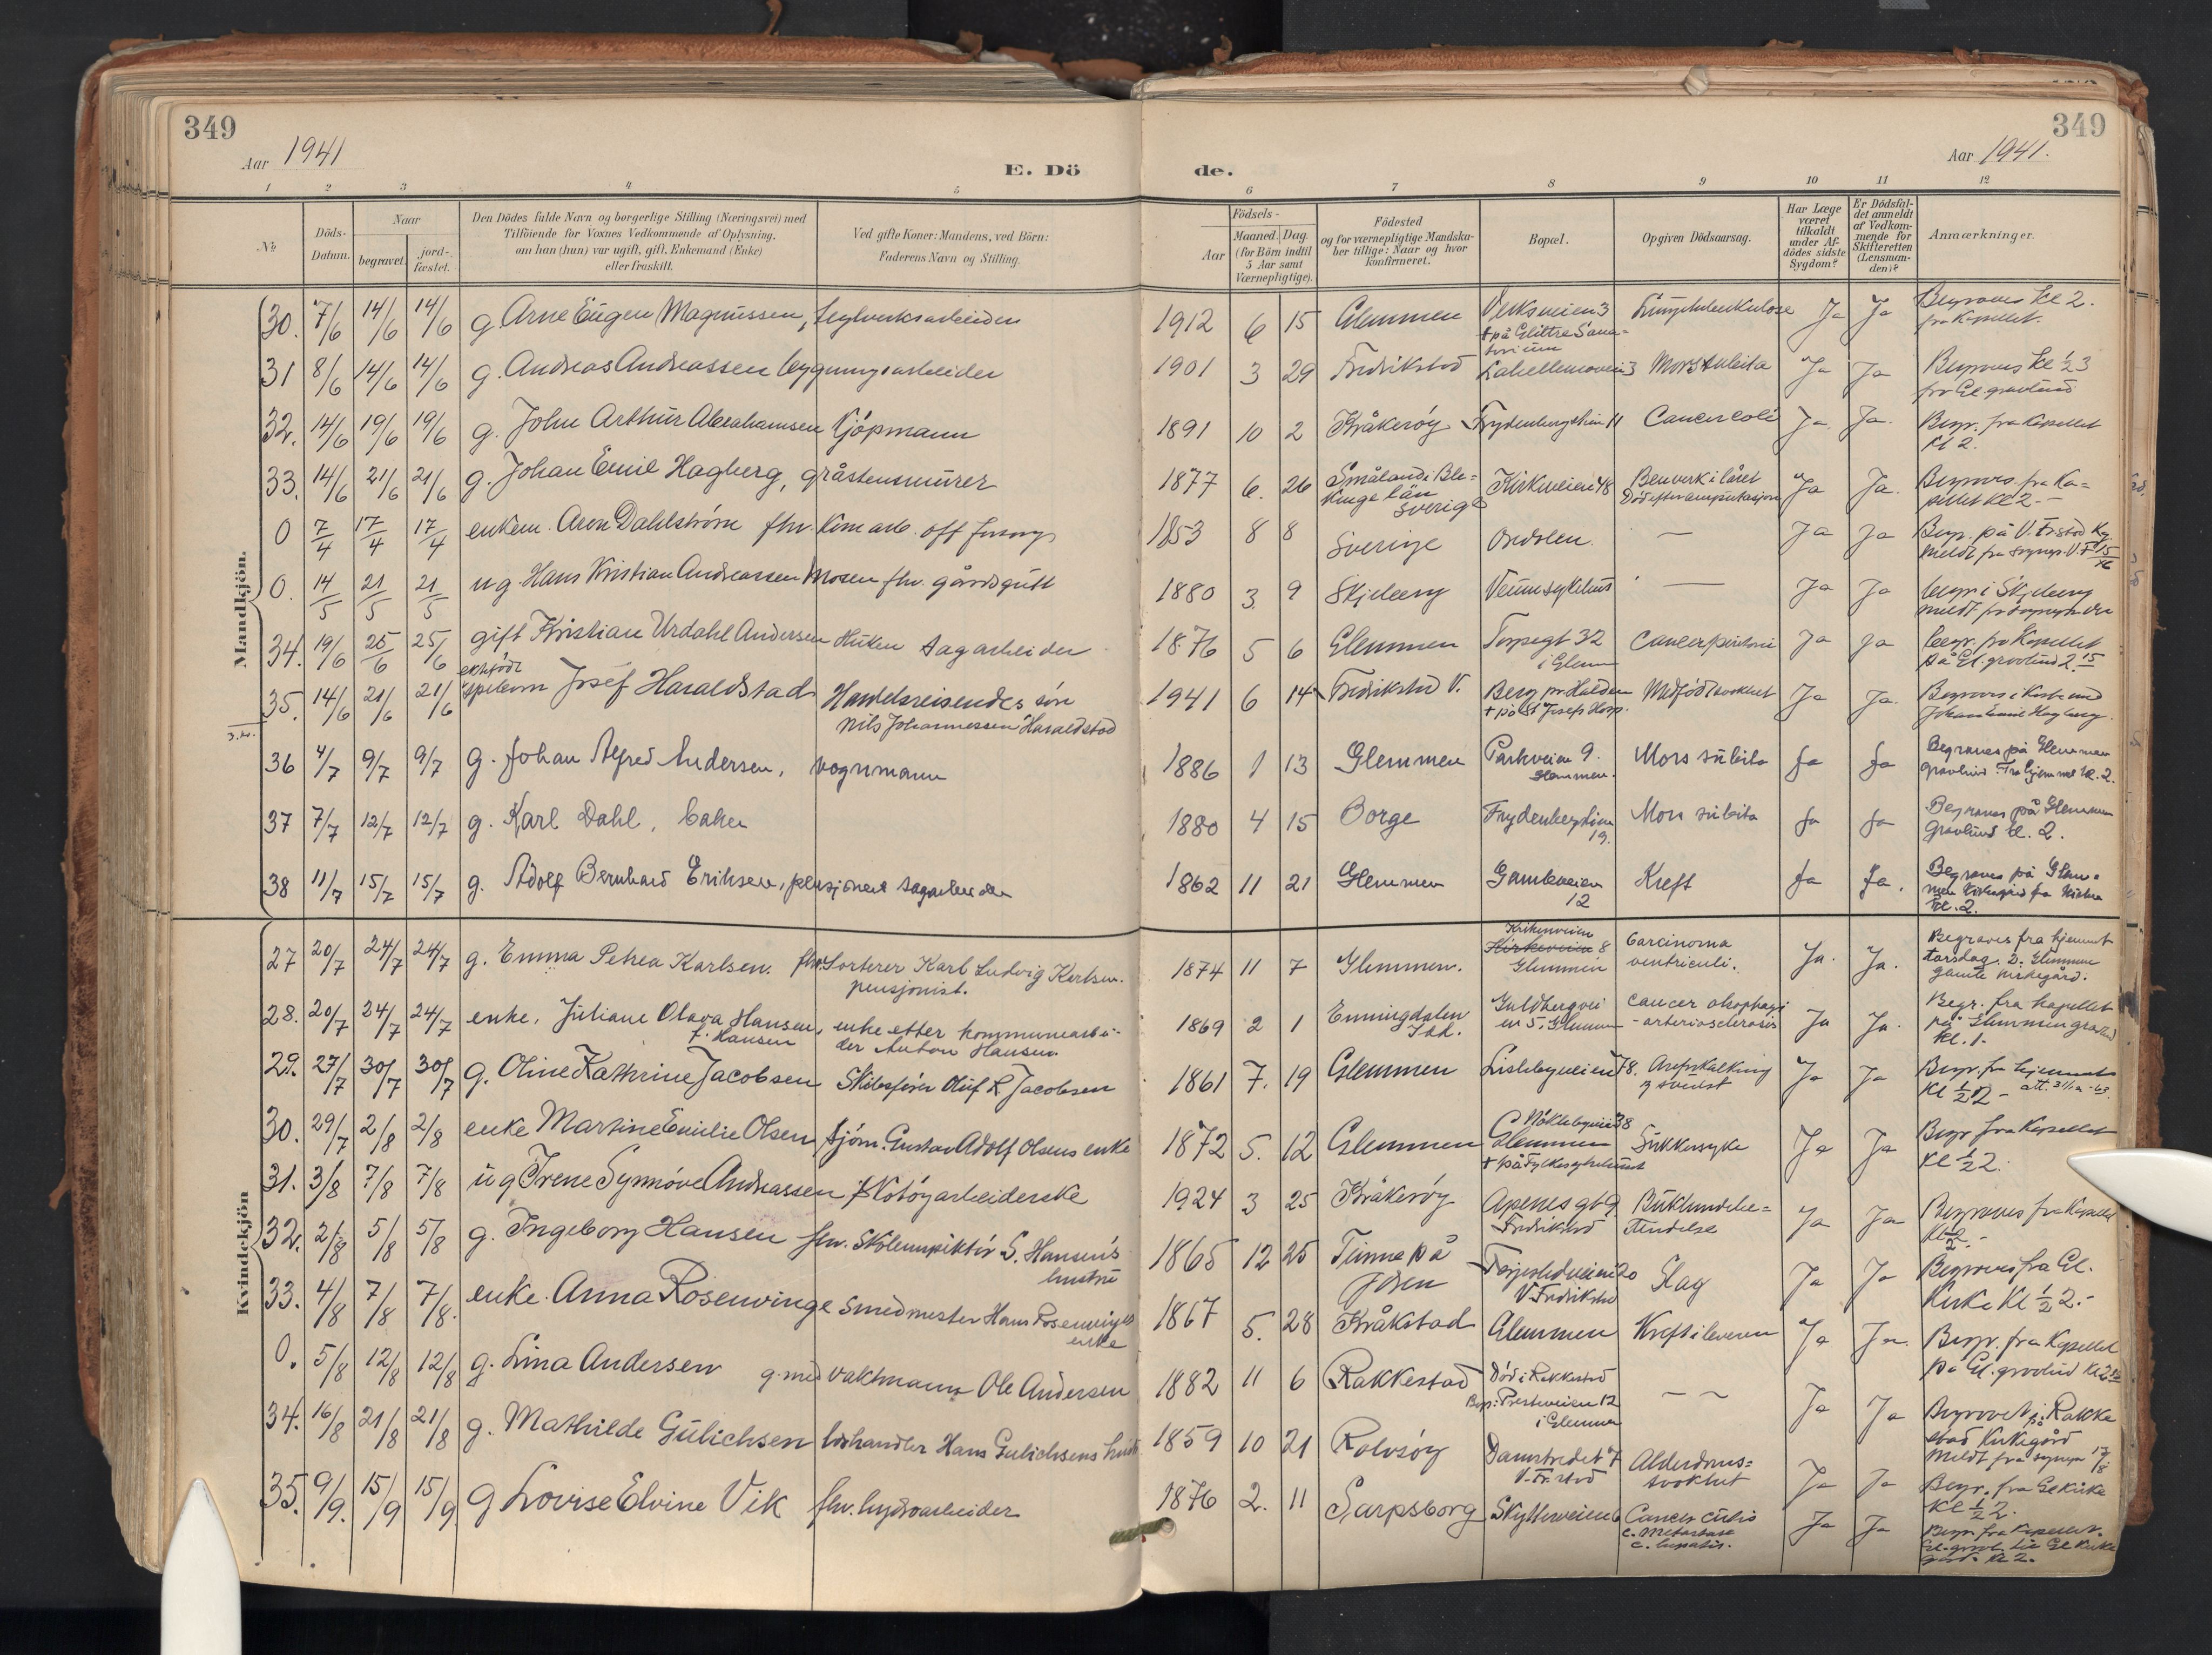 349
Aar 1941
E. Dö
de.
Aar 1941.
349
1 2 3 4 5 6 7 8 9 10 11 12
No
Döds-Datum.
Naar
begravet.
jord-fæstet.
Den Dödes fulde Navn og borgerlige Stilling (Næringsvei) med
Tilföiende for Voxnes Vedkommende af Oplysning,
om han (hun) var ugift, gift, Enkemand (Enke)
eller fraskilt.
Ved gifte Koner: Mandens, ved Börn:
Faderens Navn og Stilling.
Födsels-
Aar
Maaned. Dag.
(for Börn indtil
5 Aar samt
Værnepligtige).
Födested
og for værnepligtige Mandska-
ber tillige: Naar og hvor
konfirmeret.
Bopæl.
Opgiven Dödsaarsag.
Har Læge
været
tilkaldt
under Af-
dödes sidste
Sygdom?
Er Dödsfal-
det anmeldt
af Vedkom-
mende for
Skifteretten
(Lensman-
den)?
Anmærkninger.
Mandkjön.
30. 7/6 14/6 14/6 g. Arne Eugen Magnussen, 1912 6 15 Glemmen Verksveien 3 Ja Ja Begraves kl 2.
+ på Glittre Sana-
torium
fra Kapellet.
31 8/6 14/6 14/6 g. Andreas Andreassen bygningsarbeider 1901 3 29 Fredrikstad Mors subita Ja Ja Begraves kl ½ 3
fra Gl gravlund
32. 14/6 19/6 19/6 g. John Arthur Abrahamsen Kjöpmann 1891 10 2 Kråkeröy Frydenbergstien 11 Cancer coli Ja. Ja. Begr. fra Kapellet
kl 2.
33. 14/6 21/6 21/6 g. Johan Emil Hagberg, gråstensmurer 1877 6. 26 Småland i Ble-
kinge län
Sverige
Kirkeveien 48 Benverk i låret
Död efter amputasjon
Ja Ja. Begraves fra Ka-
pellet kl 2.-
0 7/4 17/4 17/4 enkem. Aron Dahlström fhv. 1853 8 8 Sverige — Ja Ja Begr. på V. Fr.stad Kg.
0. 14/5 21/5 21/5 ug. Hans Kristian Andreassen Mosen fhv. gårdsgutt 1880 3. 9 Skjeberg Veum sykehus — Ja Ja begr i Skjeberg
34. 19/6 25/6 25/6 gift Kristian Urdahl Andersen Huken sagarbeider 1876 5 6 Glemmen Torpegt 32
i Glem
Ja Ja begr. fra Kapellet
på Gl. gravlund 2 15
35. 14/6 21/6 21/6 ektefödt
spebarn Josef Haraldstad Handelsreisendes sön
Nils Johannessen Haraldstad
1941 6 14 Fredrikstad V. Berg pr Halden
+ på St Josefs Hosp.
Medfödt svakhet Ja Ja. Begraves i kiste med
Johan Emil Hagberg
36 4/7 9/7 9/7 g. Johan Alfred Andersen, vognmann 1886 1 13 Glemmen Parkveien 9.
Glemmen.
Mors subita Ja Ja Begraves på Glemmen
gravlund. Fra hjemmet kl. 2.
37 7/7 12/7 12/7 g. Karl Dahl, baker 1880 4 15 Borge Frydenbergstien
19.
Mors subita Ja Ja Begraves på Glemmen
Gravlund kl. 2.
38 11/7 15/7 15/7 g. Adolf Bernhard Eriksen, pensjonert sagarbeider 1862 11 21 Glemmen Gamleveien
12
Kreft Ja Ja. Begraves på Glem-
men Kirkegård fra Kirken
kl. 2.
Kvindekjön
27 20/7 24/7 24/7 g. Emma Petrea Karlsen. fhv. Sorterer Karl Ludvig Karlsen.
pensjonist.
1874 11 7 Glemmen. 8
Glemmen
Carcinoma
ventriculi.
Ja. Ja. Begraves fra hjemmet
torsdag. 2. Glemmen
gamle kirkegård.
28. 20/7 24/7 24/7 enke, Juliane Olava Hansen,
f. Hansen
enke etter kommunearbei-
der Anton Hansen.
1869 2 1 Enningdalen
Idd.
Guldbergvei
en 5. Glemmen
cancer oesophagi
- arteriosclerosis
Ja Ja. Begr. fra kapellet
på Glemmen gravlund
kl. 1.
29. 27/7 30/7 30/7 g. Oline Kathrine Jacobsen Skibsförer Oluf R Jacobsen 1861 7. 19 Glemmen Lislebyveien 78. Årefrkalkning Ja Ja Begr. fra hjemmet
kl ½ 2 -
30. 29/7 2/8 2/8 enke Martine Emilie Olsen sjöm. Gustav Adolf Olsens enke 1872 5. 12 Glemmen Nöklebyveien 38
Glemmen
+ på Fylkessykehuset
Sukkersyke Ja Ja Begr fra Kapellet
kl ½ 2.
31. 3/8 7/8 7/8 ug Irene Synnöve Andreassen Skotöyarbeiderske 1924 3 25 Kråkeröy Apenesgt 9
Fredrikstad
Bukhindebe-
tendelse
Ja Ja Begraves fra Kapellet
32. 2/8 5/8 5/8 g. Ingeborg Hansen fhv. Skoleinspektör S. Hansen's
hustru
1865 12 25 Slag Ja Ja Begraves fra Gl.
Kirke kl ½ 2.-
33. 4/8 7/8 7/8. enke. Anna Rosenvinge Smedmester Hans Rosenvinges
enke
1867 5. 28 Kråkstad Glemmen Kreft i leveren Ja Ja. Begr. fra Kapellet
på Gl. gravlund
0. 5/8 12/8 12/8 g. Lina Andersen g. med vaktmann Ole Andersen 1882 11 6 Rakkestad Död i Rakkestad
Bop: Presteveien 12
i Glemmen
— Ja Ja Begravet på Rakke
stad Kirkegård
34. 16/8 21/8 21/8 g. Mathilde Gulichsen Hans Gulichsens 1859 10 21 Rolvsöy Damstredet 7
V. Fr.stad
Alderdoms-
svakhet
Ja Ja Begr. fra Gl Kirke
kl ½ 2.
35. 9/9. 15/9 15/9. g Lovise Elvine Vik fhv. hydroarbeider 1876 2. 11 Sarpsborg Skytterveien 6 Cancer cutis
c. Metastase
c. hepatis.
Ja Ja Begr. fra Kapellet.